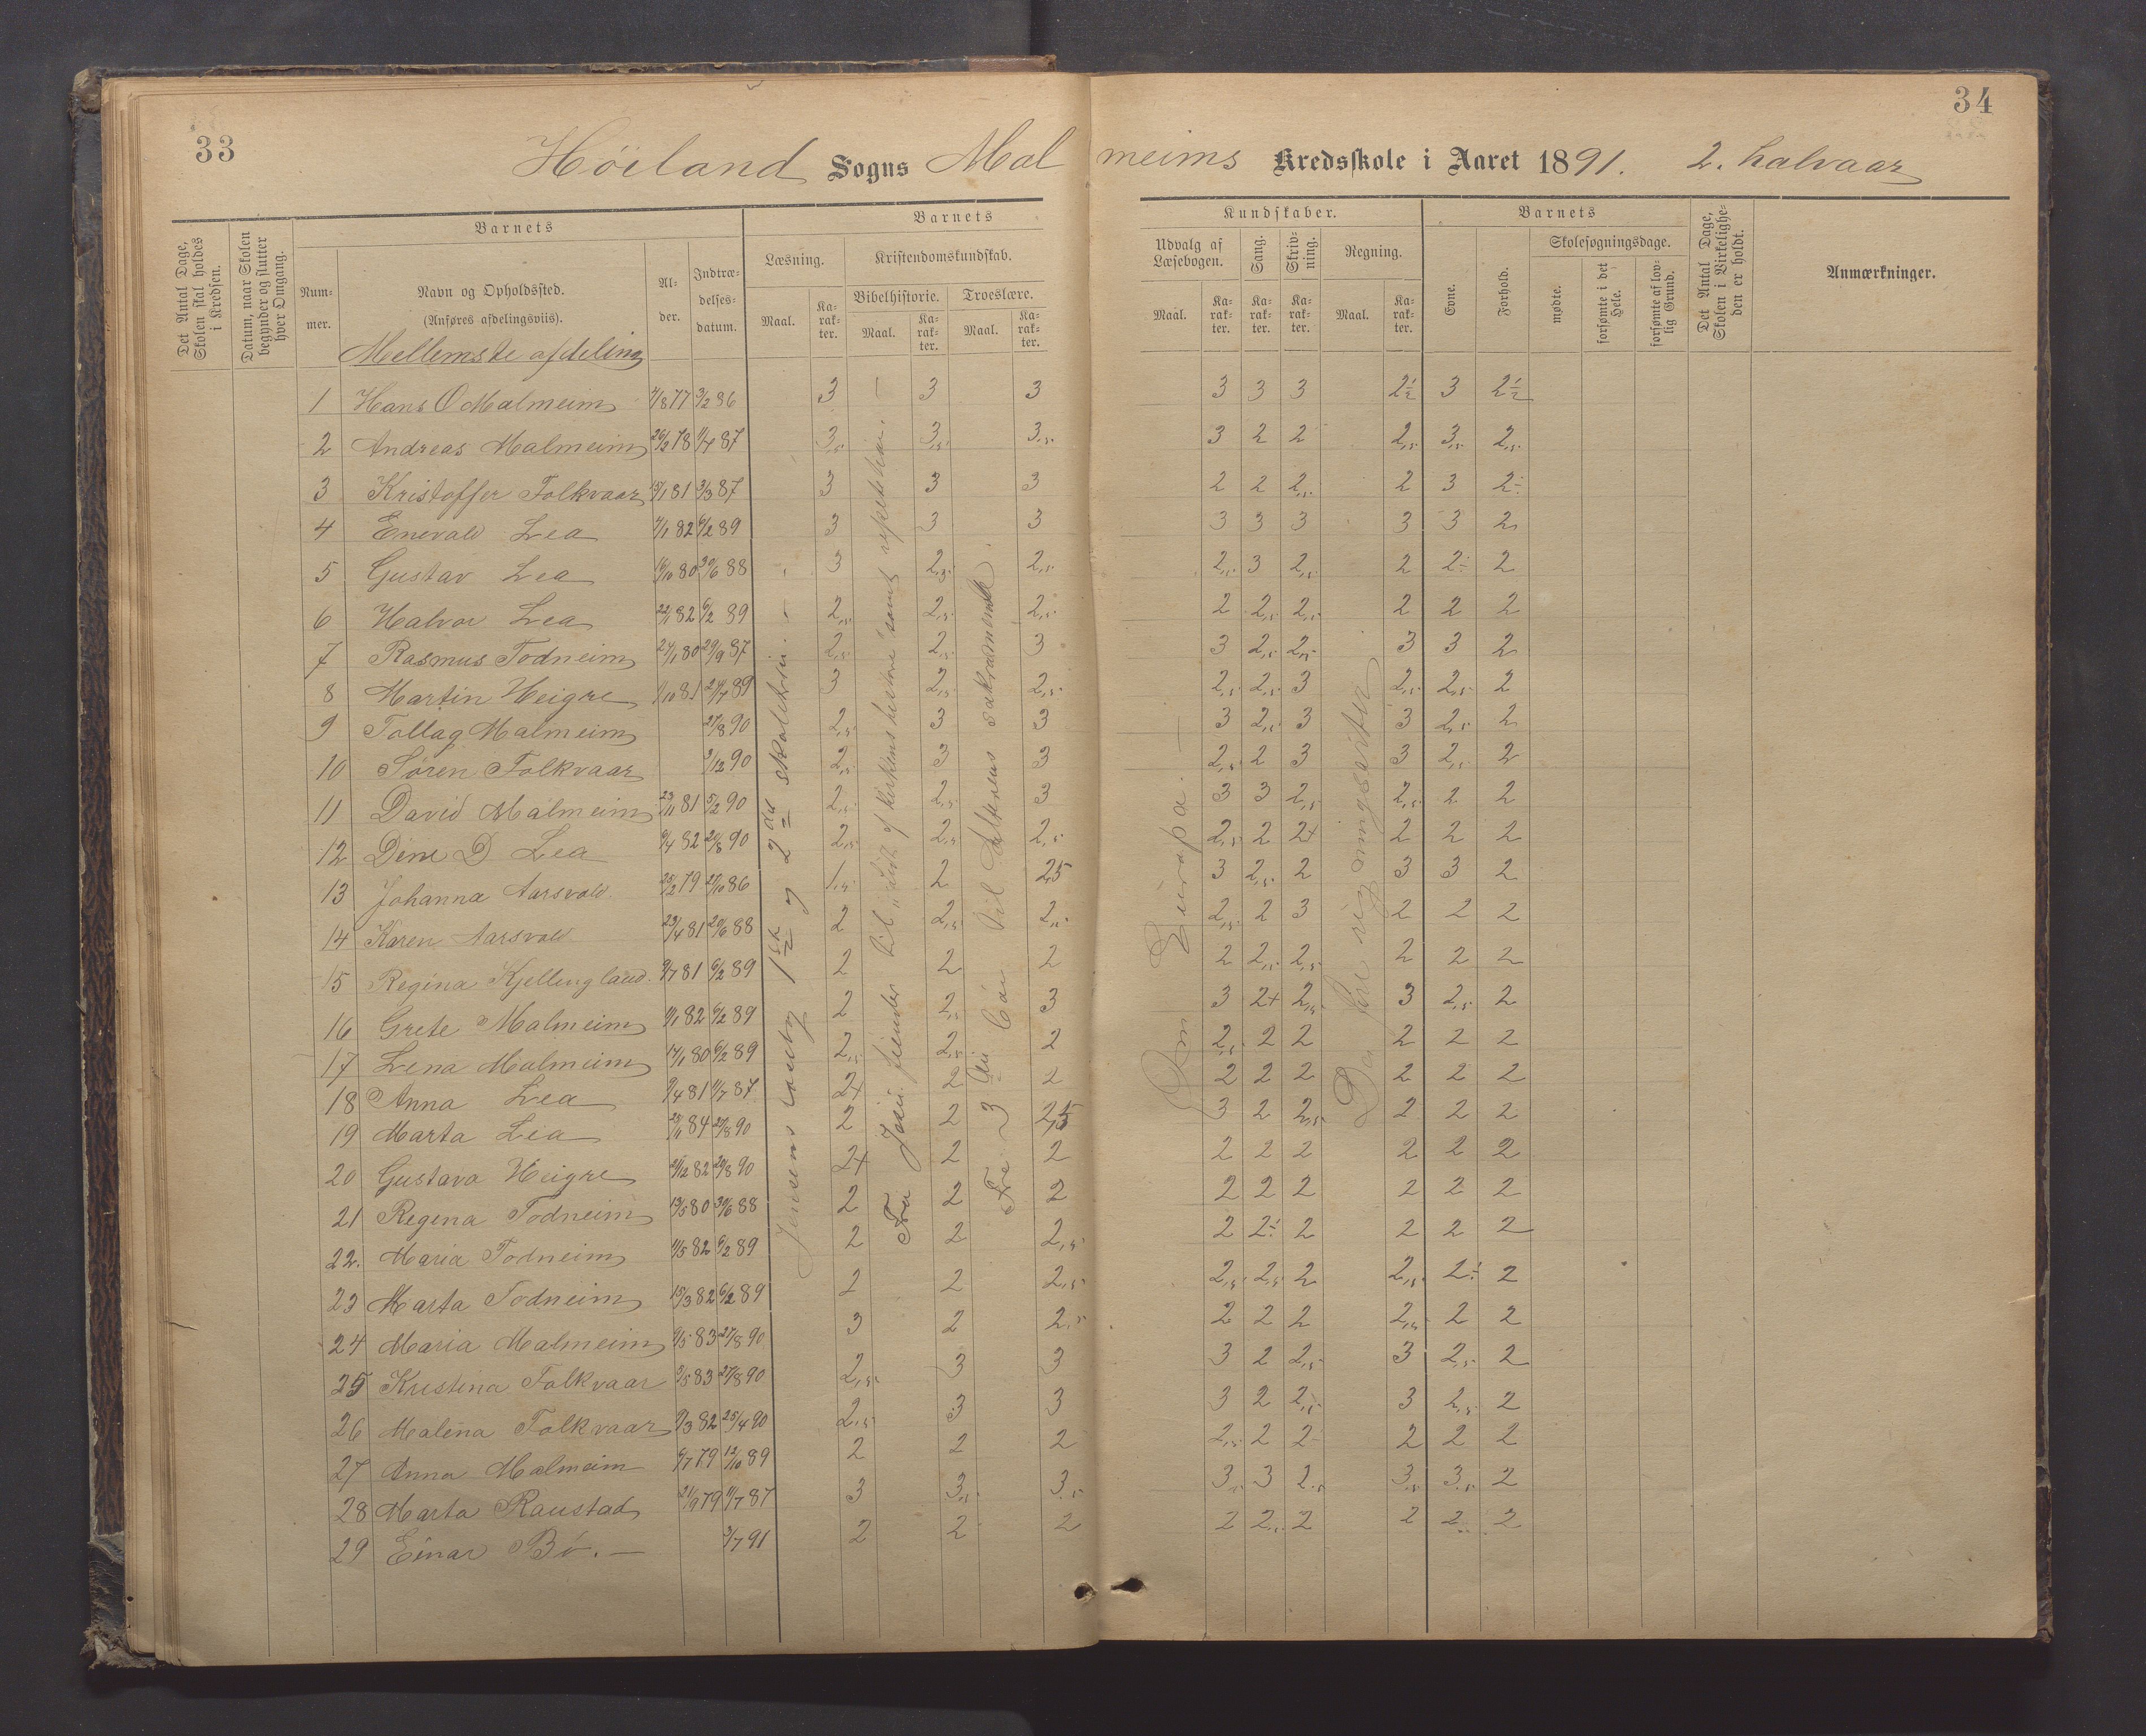 33
34
Höiland Sogns Malmeims Kredsskole i Aaret 1891. 2. halvaar
Det Antal Dage, Skolen skal holdes i Kredsen.
Datum, naar Skolen begynder og slutter hver Omgang.
Barnets
Nummer.
Navn og Opholdssted.
(Anføres afdelingsviis).
Alder.
Indtrædelsesdatum.
Barnets Kundskaber.
Læsning.
Maal.
Karakter.
Kristendomskundskab.
Bibelhistorie.
Maal.
Karakter.
Troeslære.
Maal.
Karakter.
Udvalg af Læsebogen.
Maal.
Karakter.
Sang.
Karakter.
Skrivning.
Karakter.
Regning.
Maal.
Karakter.
Barnets
Evne.
Forhold.
Skolesøgningsdage.
mødte.
forsømte i det Hele.
forsømte af lovlig Grund.
Det Antal Dage, Skolen i Virkeligheden er holdt.
Anmærkninger.
Mellemste afdeling
1 Hans O Malmeim 4/8 77 3/2 86 3 3 3 3 3 3 2½ 3 2½
2 Andreas Malmeim 26/2 78 1/7 87 3,5 3,5 3,5 3 2 2 2,5 3,5 2,5
3 Kristoffer Folkvaar 15/1 81 3/3 87 3 3 3 2 2 2,5 2 3 2÷
4 Enevald Lea 7/1 82 6/2 89 3 3 3 3 3 3 3 3 2
5 Gustav Lea 16/10 80 30/6 88 3 2,5 2,5 2,5 3 2,5 2 2÷ 2
6 Halvor Lea 22/1 82 6/2 89 2,5 2,5 2,5 2 2,5 2,5 2 2 2
7 Rasmus Todneim 24/1 80 29/9 87 2,5 2,5 3 3 2,5 2,5 3 3 2
8 Martin Heigre 1/10 81 24/7 89 3 2,5 2,5 2,5 2,5 3 2,5 2,5 2
9 Tollag Malmeim 27/8 90 2,5 3 3 3 2,5 3 3 2,5 2
10 Søren Folkvaar 3/12 90 2,5 3 3 2,5 2 3 3 2,5 2
11 David Malmeim 23/11 81 5/2 90 2,5 2,5 3 3 3 2,5 2,5 2 2
12 Dine D Lea 9/4 82 20/8 90 2,5 2,5 2,5 2,5 2 2+ 2 2 2
13 Johanna Aarsvold 25/2 79 27/10 86 1,5 2 2,5 3 2,5 2 3 3 2
14 Karen Aarsvold 23/4 81 20/6 88 2 2,5 2,5 2,5 2 3 2 2 2
15 Regina Kjellingland. 9/7 81 6/2 89 2 2 2 2 2,5 2,5 2 2 2
16 Grete Malmeim 9/1 82 6/2 89 2 2,5 3 3 2+ 2,5 3 2,5 2
17 Lena Malmeim 14/1 80 6/2 89 2,5 2,5 2 2,5 2 2 2 2 2
18 Anna Lea 9/4 81 1/7 87 2+ 2 2 2 2 2 2 2 2
19 Marta Lea 84 27/8 90 2 2 2,5 3 2 2,5 2 2 2
20 Gustava Heigre 21/12 82 20/8 90 2+ 2 2 2 2 2 2 2 2
21 Regena Todneim 13/5 80 30/6 88 2 2 2 2 2 2 2 2 2
22. Maria Todneim 1/5 82 6/2 89 2 2 2,5 2 2÷ 2 2 2 2
23 Marta Todneim 15/3 82 6/2 89 2 2 2,5 2,5 2,5 2 2,5 2÷ 2
24 Maria Malmeim 9/5 83 27/8 90 3 2 2,5 2 2 2 2,5 2 2
25 Kristina Folkvaar 3/5 83 27/8 90 2,5 3 3 3 2 2,5 3 2,5 2
26 Malena Folkvaar 9/3 82 25/4 90 2,5 3 3 3 2 2,5 3 2,5 2
27 Anna Malmeim 4/7 79 12/10 89 2 2 2 2,5 2 2 2 2 2
28 Marta Raustad 21/9 79 11/7 87 3 3,5 3,5 3,5 3 2,5 3,5 3,5 2
29 Einar Bö. — 3/7 91 2 2 2 2 2,5 2 2 2 2
Jensens 1ste og 2den skoletrin. —
Fra Josu fiender til "Lidt af kirkens historie" samt repetetion. —
Fra 3die Bön til Alterens sakramente.
Om Europa. —
De fire regningsarter